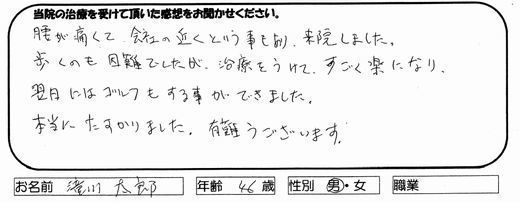 当院の治療を受けて頂いた感想をお聞かせください。
腰が痛くて、会社の近くという事もあり、来院しました。
歩くのも困難でしたが、治療をうけて、すごく楽になり、
翌日にはゴルフもする事ができました。
本当にたすかりました。有難うございます。
お名前 滝川 太郎 年齢 46 歳 性別 男・女 職業